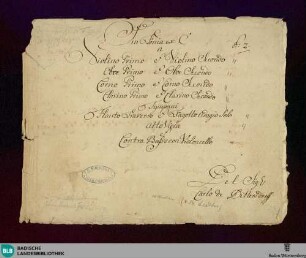 Sinfonia ex C
a
Violino Primo è Violino Secondo
Oboe Primo è Oboe Secondo
Corno Primo è Corno Secondo
Clarino Primo è Clarino Secondo
Tympani
Flauto Traverso è Fagotto Solo
Alto Viola
Contra Basso con Violoncello
Del Sigl:
Carlo de Dittersdorff
BLB BADISCHE LANDESBIBLIOTHEK
Baden-Württemberg